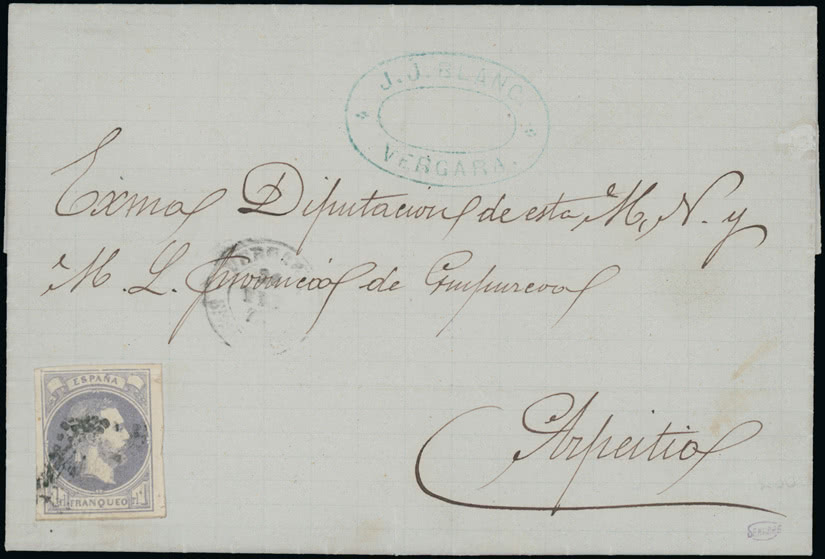 J. J. BLANC
VERGARA.
Exma Diputacion de esta M. N. y
M. L. Provincia de Guipuzcoa
Azpeitia
ESPAÑA
1 FRANQUEO 1